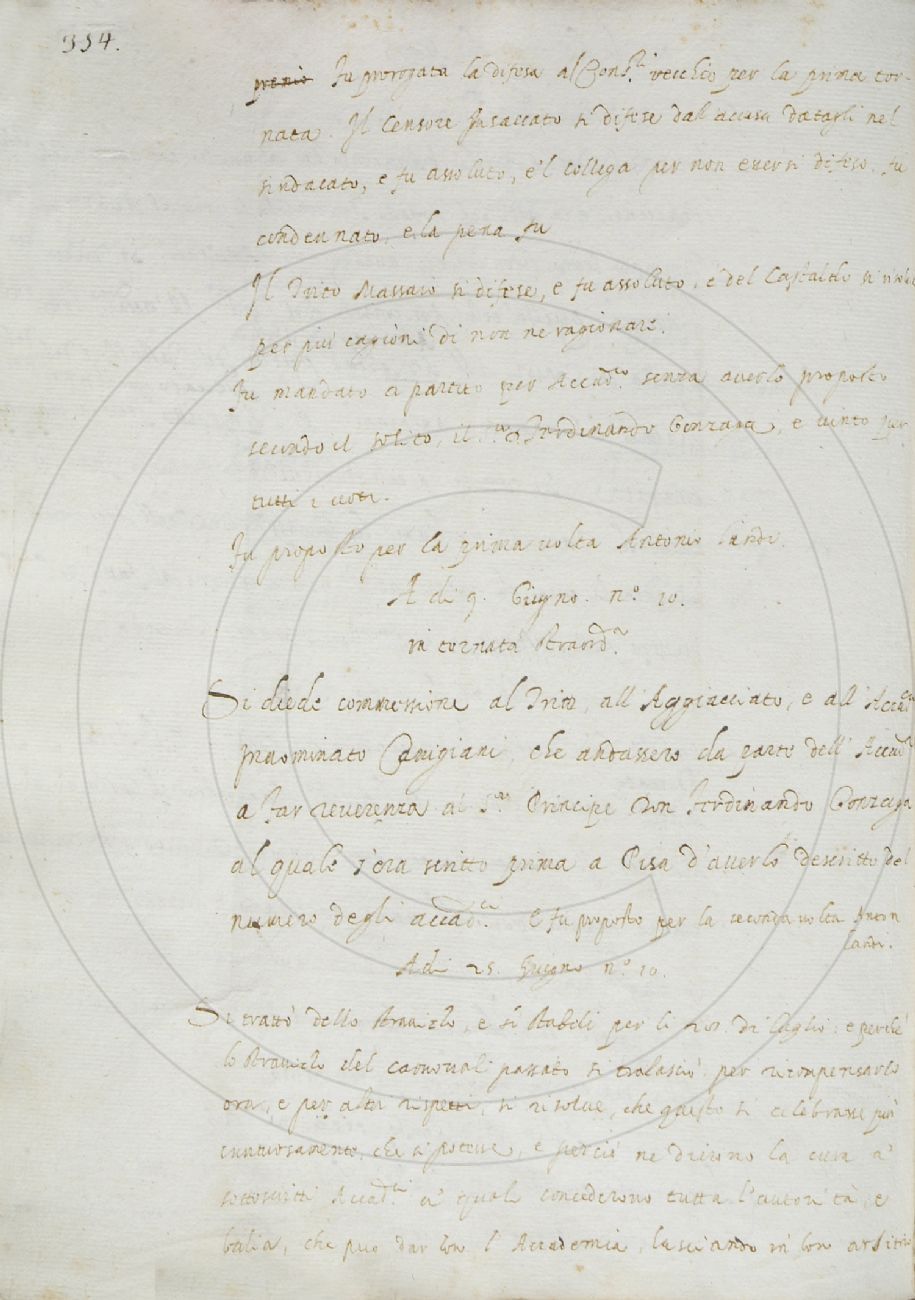 354.
premio fu prorogata la difesa al Cons.ri vecchio per la prima tor-
nata. Il Censore Insaccato si difese dall accusa datagli nel
sindacato, e fu assoluto, e'l collega per non essersi difeso, fu
condennato, e la pena fu
Il Trito Massaio si difese, e fu assoluto, e del Castaldo si risolué
per più cagioni di non ne ragionare.
Fu mandato a partito per Accad.co senza averlo proposto
secondo il solito, il S.r D. Ferdinando Gonzaga, e vinto per
tutti i voti.
Fu proposto per la prima volta Antonio Landi.
A di 9. Giugno. n.o 10.
in tornata straord.a
Si diede commessione al Trito, all'Aggiacciato, e all'Accad.co
innominato Canigiani, che andassero da parte dell'Accad.a
a far reverenza al S.r Principe Don Ferdinando Gonzaga
al quale s'era scritto prima a Pisa d'averlo descritto del
numero degli accad.ci. E fu proposto per la seconda volta Anton
Landi.
Adi 25. Giugno n.o 10.
Si trattò dello Stravizzo, e si stabilì per li di Luglio: e perchè
lo Stravizo del carnovali passato si tralasciò per ricompensarlo
ora, e per altri rispetti, si risolue, che questo si celebrasse più
suntuosamente, che si poteva, e perciò ne dierono la cura a'
sottoscritti Accad.ci a' quali concederono tutta l'autorità, e
balìa, che può dar lor l'Accademia, lasciando in lor arbitrio